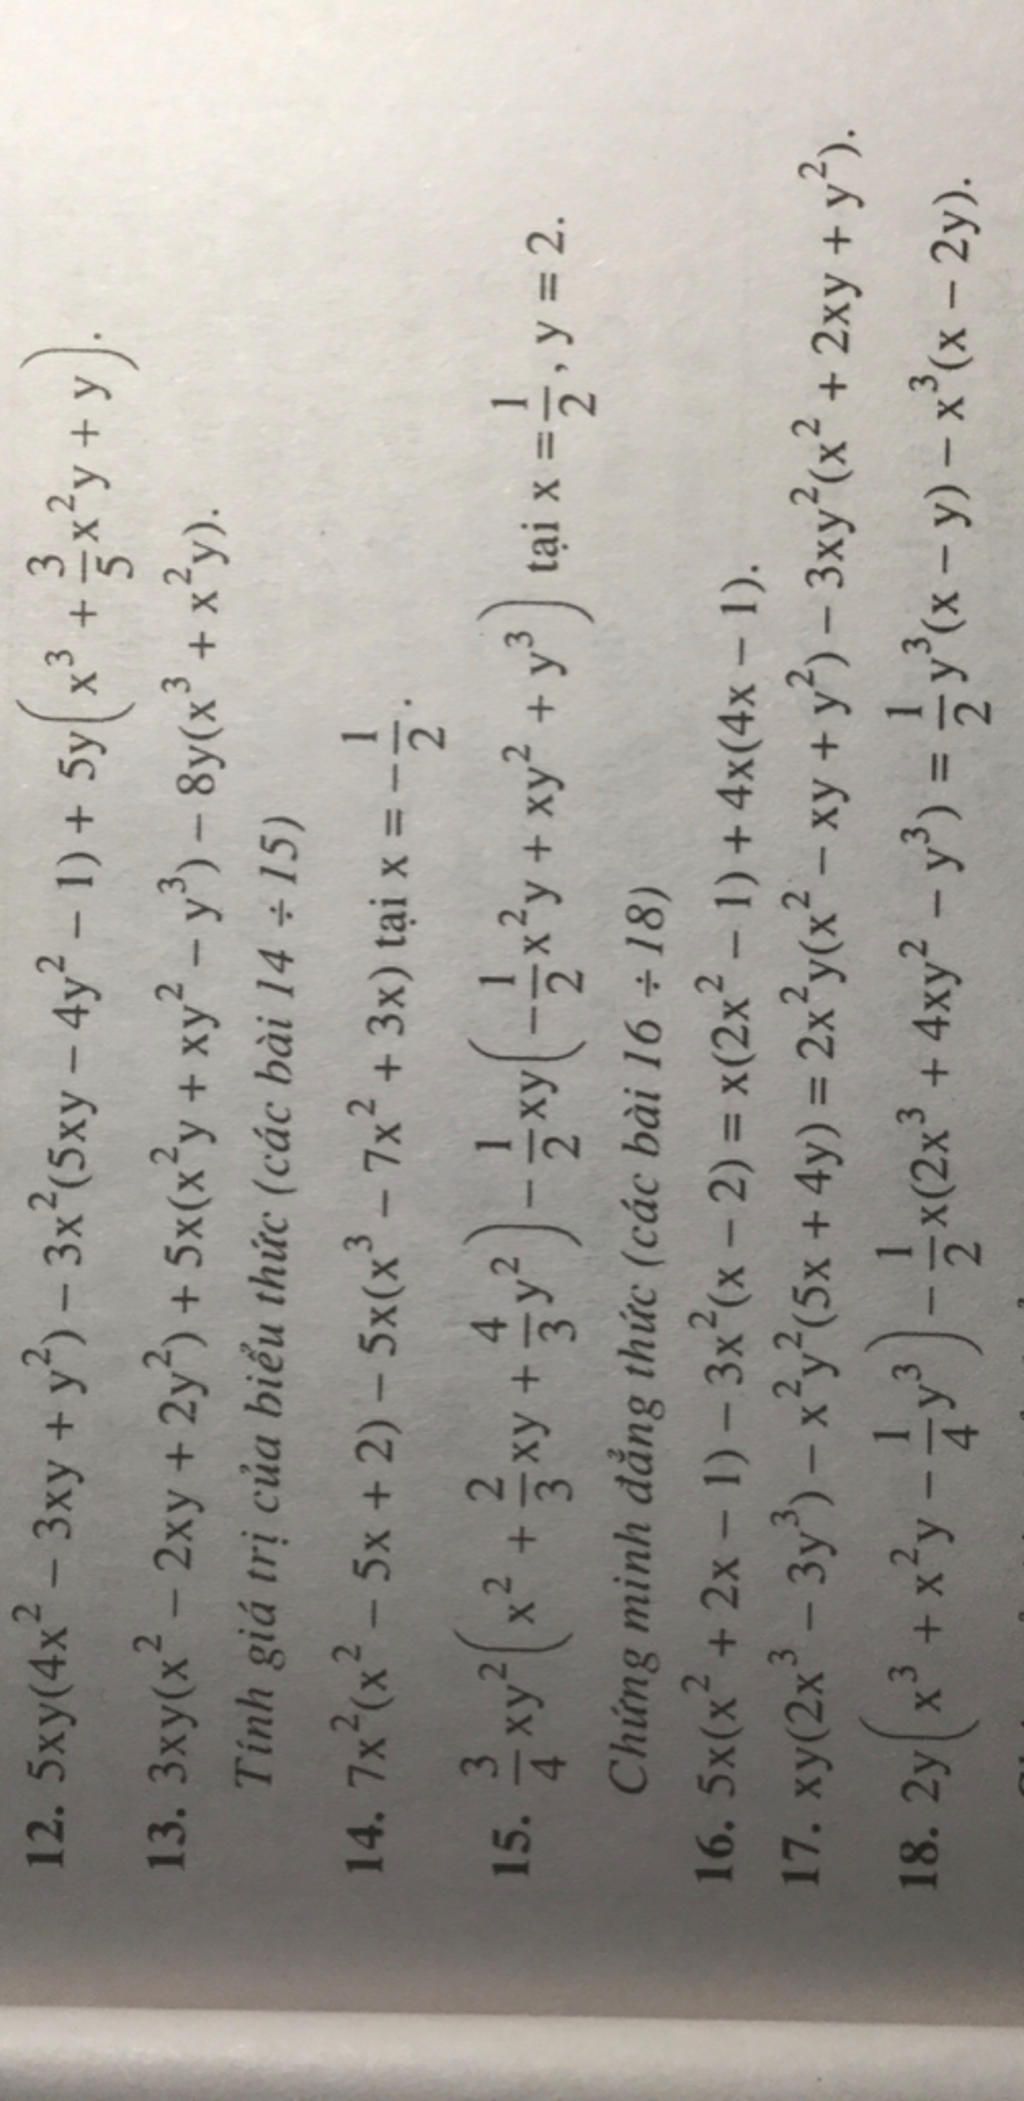 12. 5xy(4x² − 3xy + y²) − 3x²(5xy − 4y² − 1) + 5y(x³ + 3/5 x²y + y).
13. 3xy(x² − 2xy + 2y²) + 5x(x²y + xy² − y³) − 8y(x³ + x²y).
Tính giá trị của biểu thức (các bài 14 ÷ 15)
14. 7x²(x² − 5x + 2) − 5x(x³ − 7x² + 3x) tại x = −1/2.
15. 3/4 xy²(x² + 2/3 xy + 4/3 y²) − 1/2 xy(−1/2 x²y + xy² + y³) tại x = 1/2, y = 2.
Chứng minh đẳng thức (các bài 16 ÷ 18)
16. 5x(x² + 2x − 1) − 3x²(x − 2) = x(2x² − 1) + 4x(4x − 1).
17. xy(2x³ − 3y³) − x²y²(5x + 4y) = 2x²y(x² − xy + y²) − 3xy²(x² + 2xy + y²).
18. 2y(x³ + x²y − 1/4 y³) − 1/2 x(2x³ + 4xy² − y³) = 1/2 y³(x − y) − x³(x − 2y).